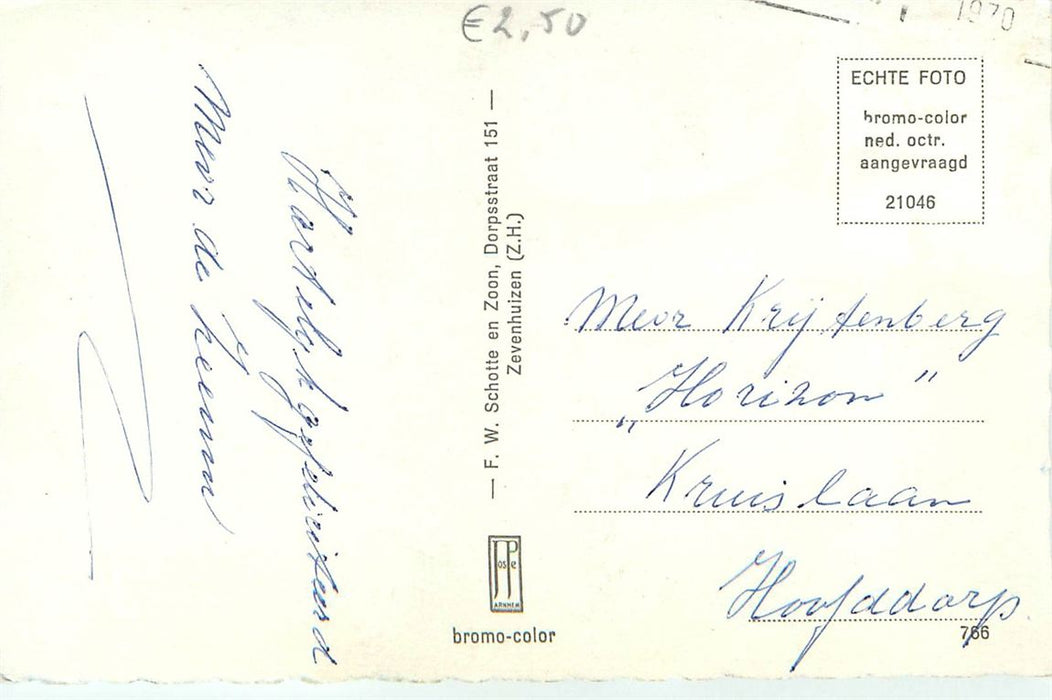 €2,50
1970
Hartelijk gefeliciteerd
Mevr de heem
— F. W. Schotte en Zoon, Dorpsstraat 151 —
Zevenhuizen (Z.H.)
JosPe
ARNHEM
bromo-color
ECHTE FOTO
bromo-color
ned. octr.
aangevraagd
21046
Mevr Krijtenberg
„Horizon”
Kruislaan
Hoofddorp
766